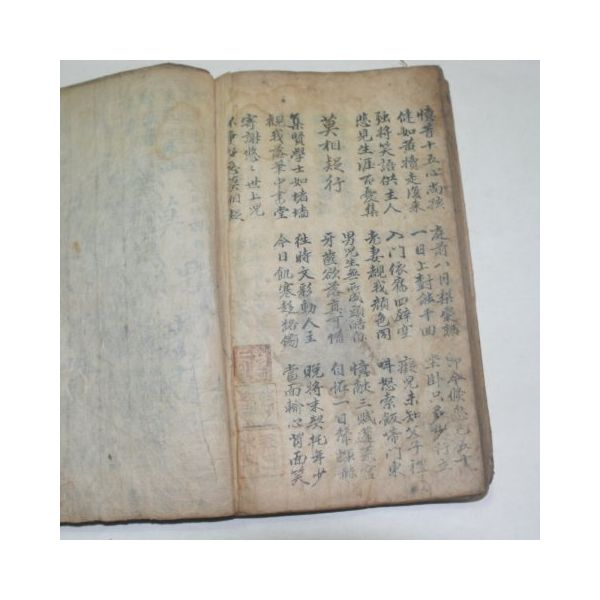 憶昔十五心尚孩
健如黃犢走復來
庭前八月梨棗熟
一日上樹能千回
即今倏忽已五十
坐臥只多少行立
强將笑語供主人
悲見生涯百憂集
入門依舊四壁空
老妻覩我顔色同
癡兒未知父子禮
叫怒索飯啼門東
莫相疑行
男兒生無所成頭皓白
牙齒欲落真可惜
憶獻三賦蓬萊宮
自怪一日聲輝
集賢學士如堵墻
覩我落筆中書堂
往時文彩動人主
今日飢寒趨路
晚將末契托年少
當面輸心背面笑
寄謝悠〻世上兒
不爭好惡莫相疑